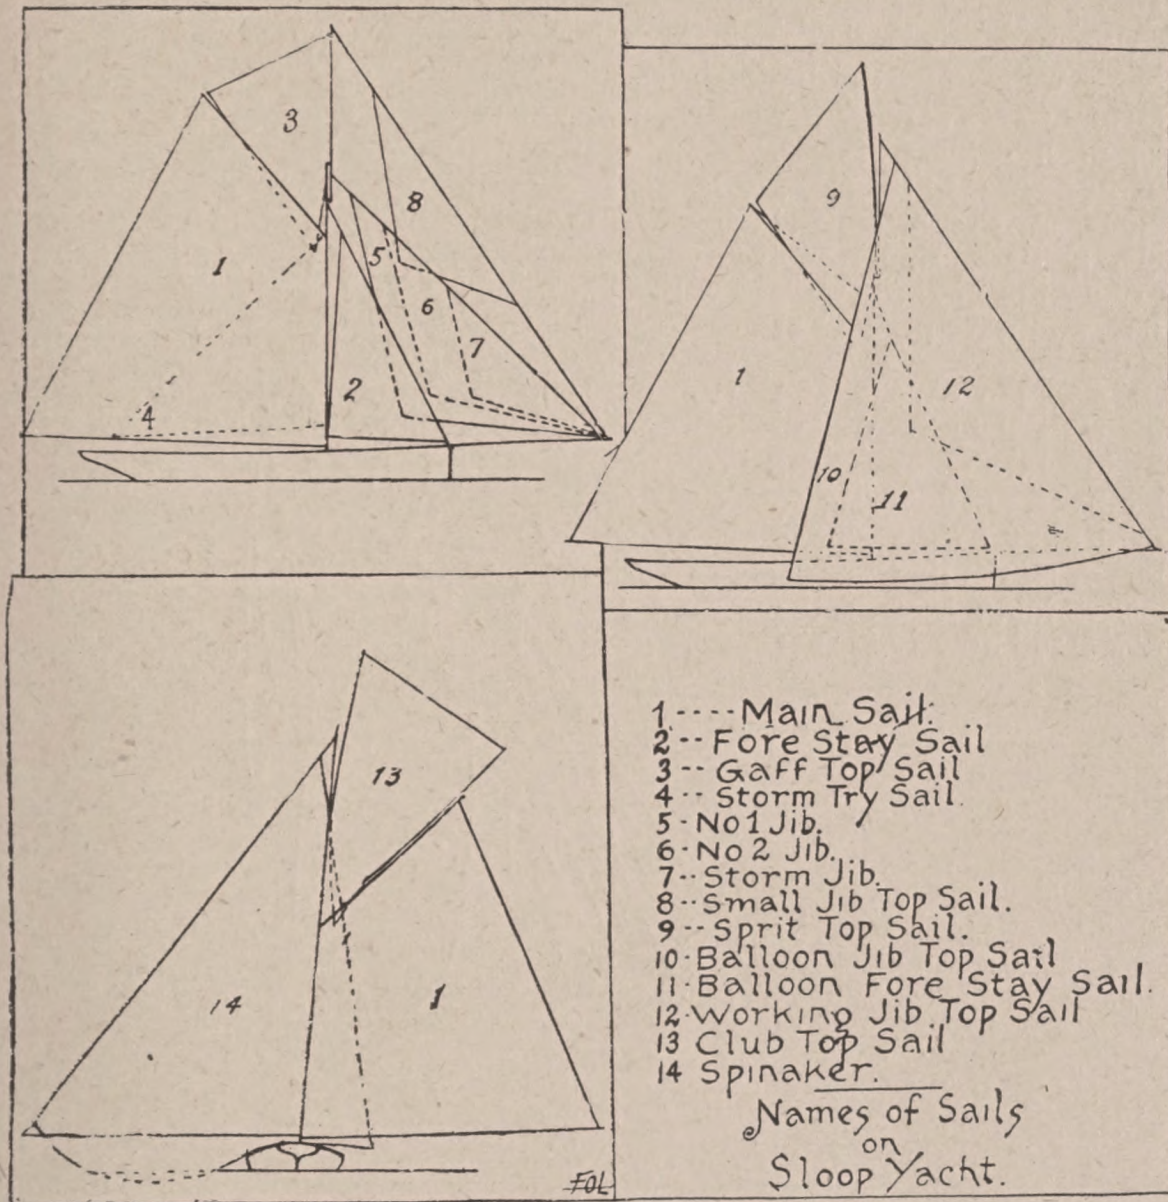 3
8
1
5
6
7
2
4
9
1
12
10
11
13
14
1
FOL
1 ---- Main Sail.
2 -- Fore Stay Sail
3 -- Gaff Top Sail
4 -- Storm Try Sail.
5 - No 1 Jib.
6 - No 2 Jib.
7 -- Storm Jib.
8 -- Small Jib Top Sail.
9 -- Sprit Top Sail.
10 - Balloon Jib Top Sail
11 - Balloon Fore Stay Sail.
12 - Working Jib Top Sail
13 Club Top Sail
14 Spinaker.
Names of Sails
on
Sloop Yacht.